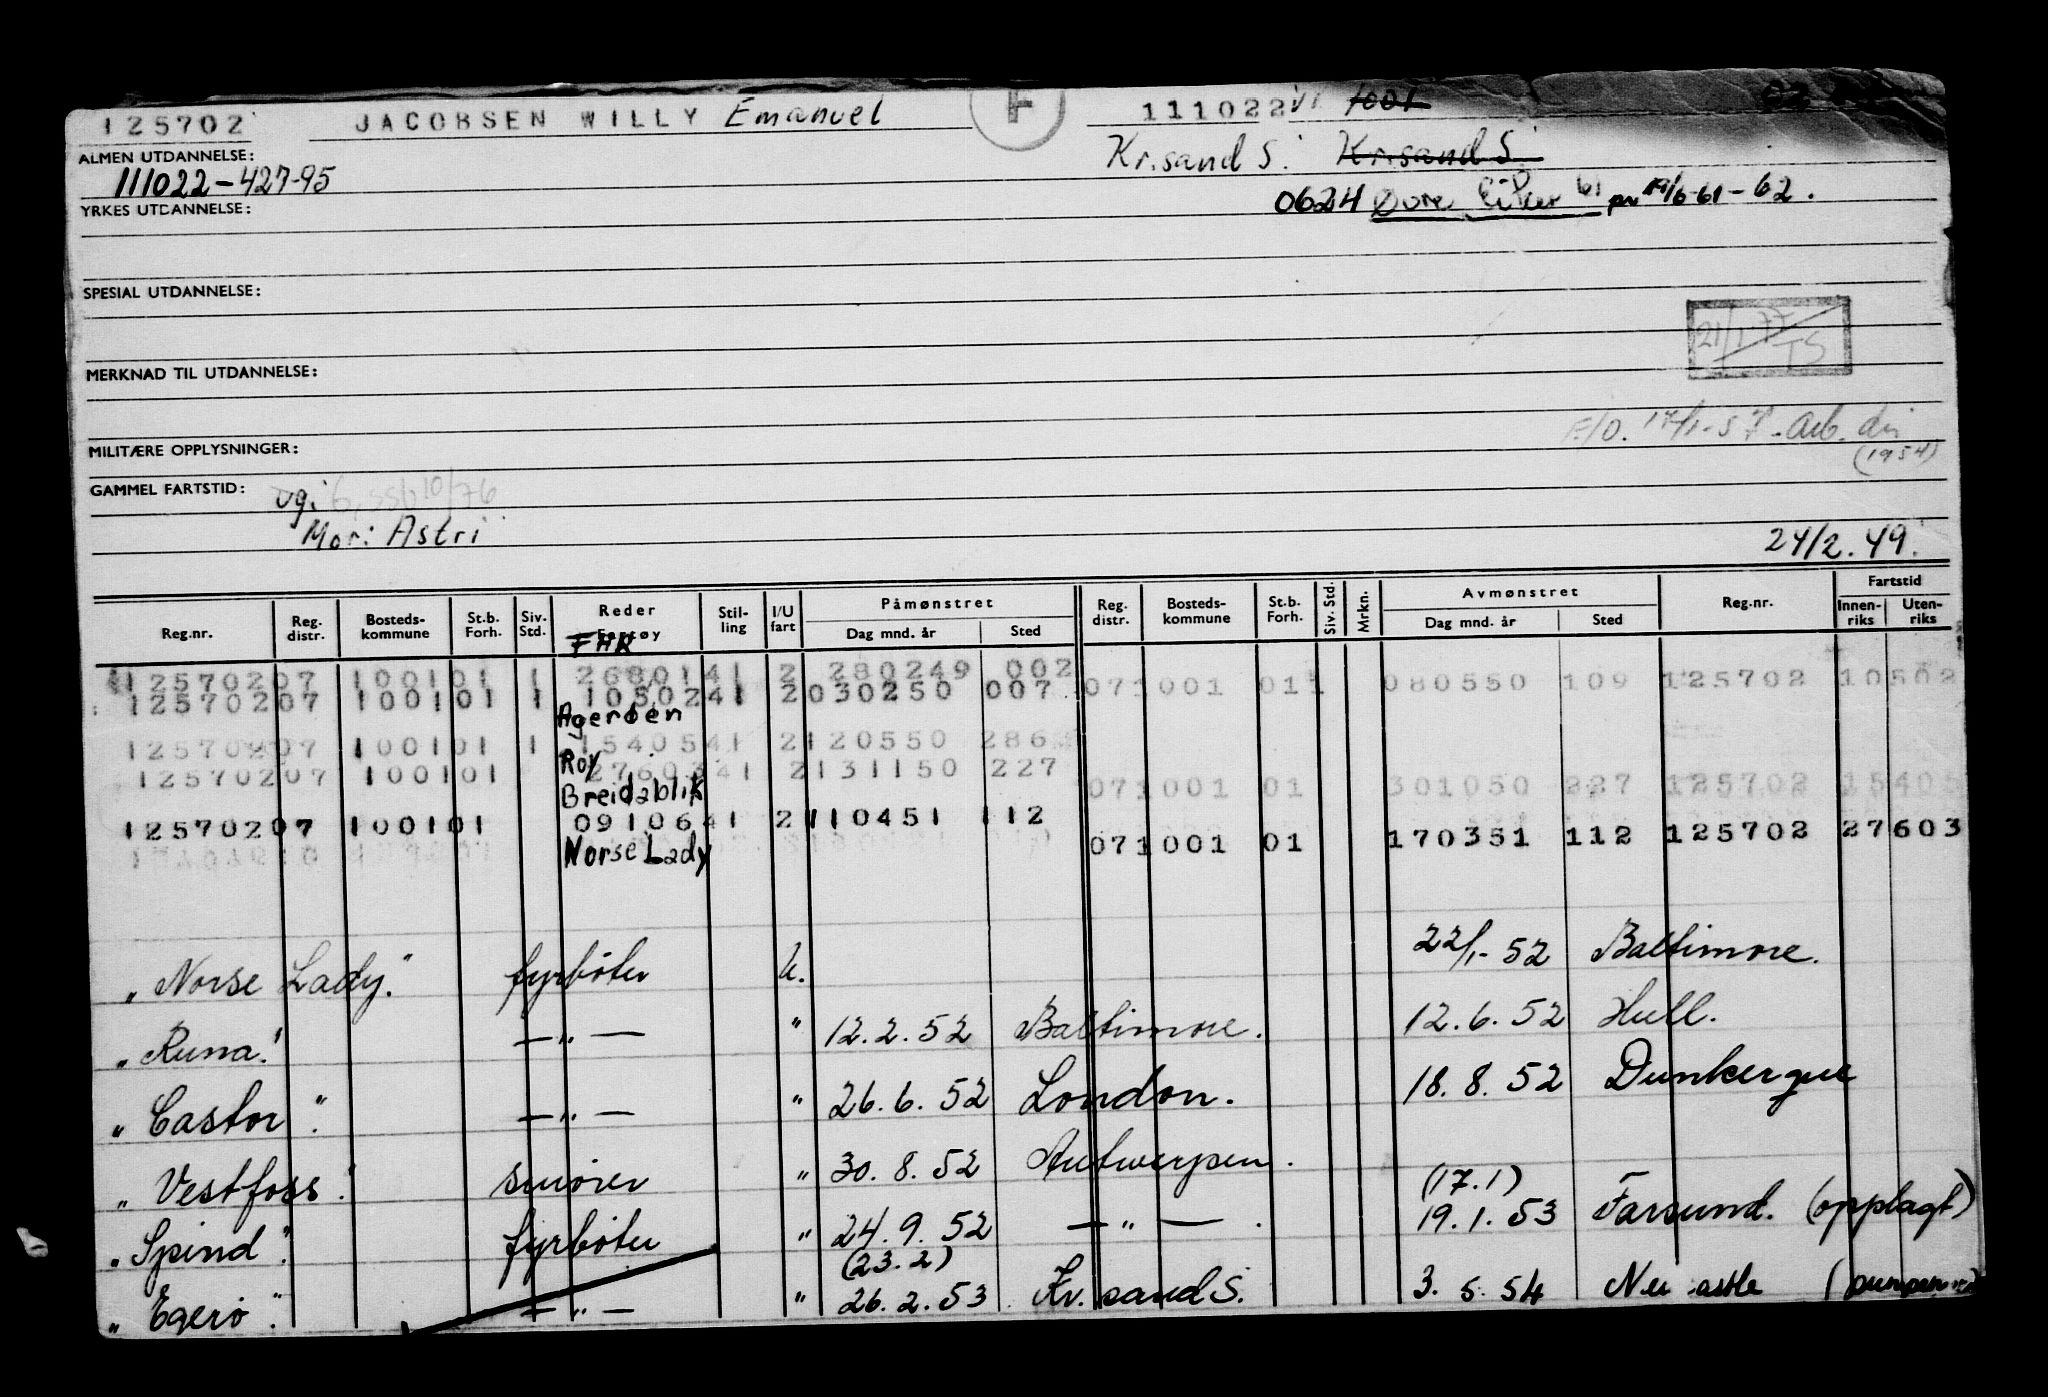 125702 JACOBSEN WILLY Emanuel F 111022 1001
ALMEN UTDANNELSE: Kr.sand S. Kr.sand S.
111022-427-95
YRKES UTDANNELSE: 0624 Øvre Eiker 61 pr 19/6-61-62.
SPESIAL UTDANNELSE:
21/1-77 TS
MERKNAD TIL UTDANNELSE:
F/O. 17/1-57. Arb. dir
MILITÆRE OPPLYSNINGER: (1954)
GAMMEL FARTSTID: 10/76
Mor: Astri
24/2.49.
Reg.nr. Reg. distr. Bosteds-kommune St.b. Forh. Siv. Std. Reder Fartøy Stil-ling I/U fart Påmønstret Dag mnd. år Sted Reg. distr. Bosteds-kommune St.b. Forh. Siv. Std. Mrkn. Avmønstret Dag mnd. år Sted Reg.nr. Fartstid Innen-riks Uten-riks
12570207 100101 1 2680141 2 280249 002
12570207 100101 1 1050241 2 030250 007 071001 011 080550 109 125702 10502
Agerøen
12570207 100101 1 1540541 2 120550 286
Roy
12570207 100101 2760341 2 131150 227 071001 01 301050 227 125702 15405
Breidablik
12570207 100101 0910641 2 110451 112 071001 01 170351 112 125702 27603
Norse Lady
"Norse Lady." fyrbøter U. 22/1-52 Baltimore.
"Runa." —"— " 12.2.52 Baltimore. 12.6.52 Hull.
"Castor". —"— " 26.6.52 London. 18.8.52 Dunkerque
"Vestfoss". smører " 30.8.52 Antwerpen.
(17.1)
"Spind". fyrbøter " 24.9.52 —"—. 19.1.53 Farsund. (opplagt)
(23.2)
"Egerø". —"— " 26.2.53 Kr.sand S. 3.5.54